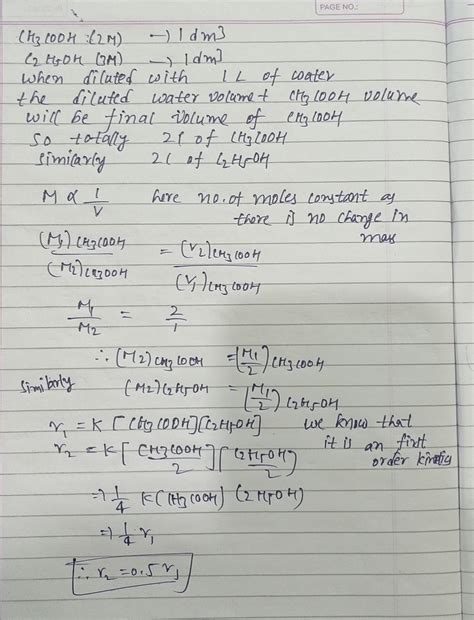 PAGE NO.:
CH3COOH :(2M) → 1dm3
C2H5OH (3M) → 1dm3
when diluted with 1L of water
the diluted water volume + CH3COOH volume
will be final volume of CH3COOH
so totally 2l of CH3COOH
similarly 2l of C2H5OH
M ∝ 1/V here no. of moles constant as
there is no change in
mass
(M1)CH3COOH / (M2)CH3COOH = (V2)CH3COOH / (V1)CH3COOH
M1/M2 = 2/1
∴ (M2)CH3COOH = (M1/2)CH3COOH
similarly (M2)C2H5OH = (M1/2)C2H5OH
r1 = K[CH3COOH][C2H5OH] we know that
r2 = K[CH3COOH/2][C2H5OH/2] it is an first
order kinetics
⇒ 1/4 K(CH3COOH)(2H5OH)
⇒ 1/4 r1
∴ r2 = 0.5 r1